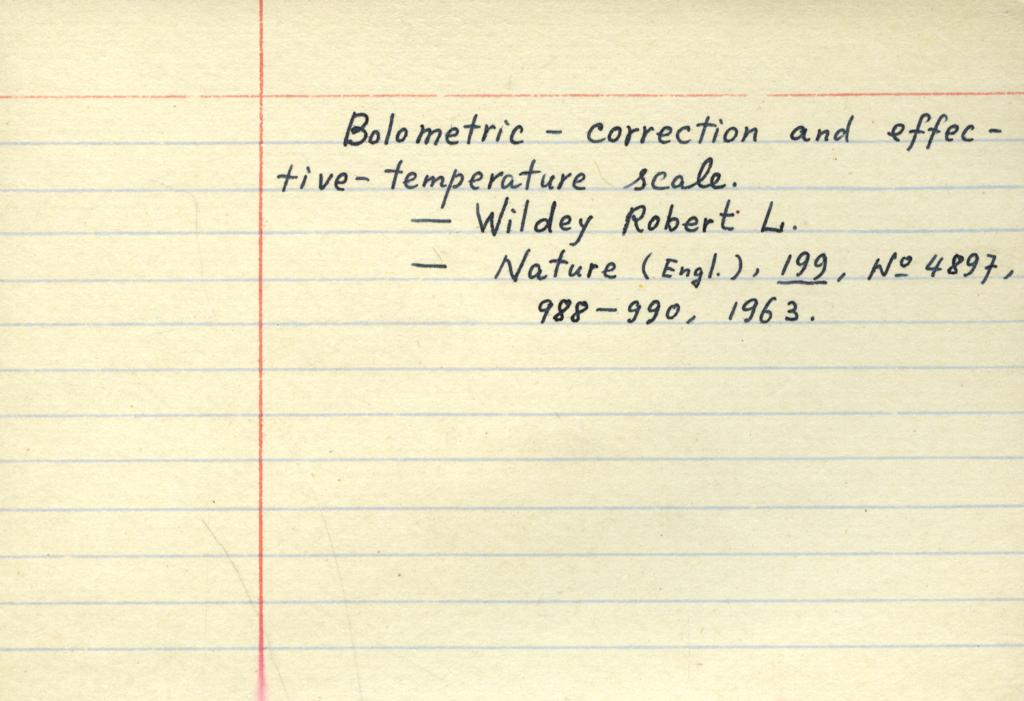 Bolometric - correction and effec-
tive- temperature scale.
— Wildey Robert L.
— Nature (Engl.), 199, Nº 4897,
988-990, 1963.